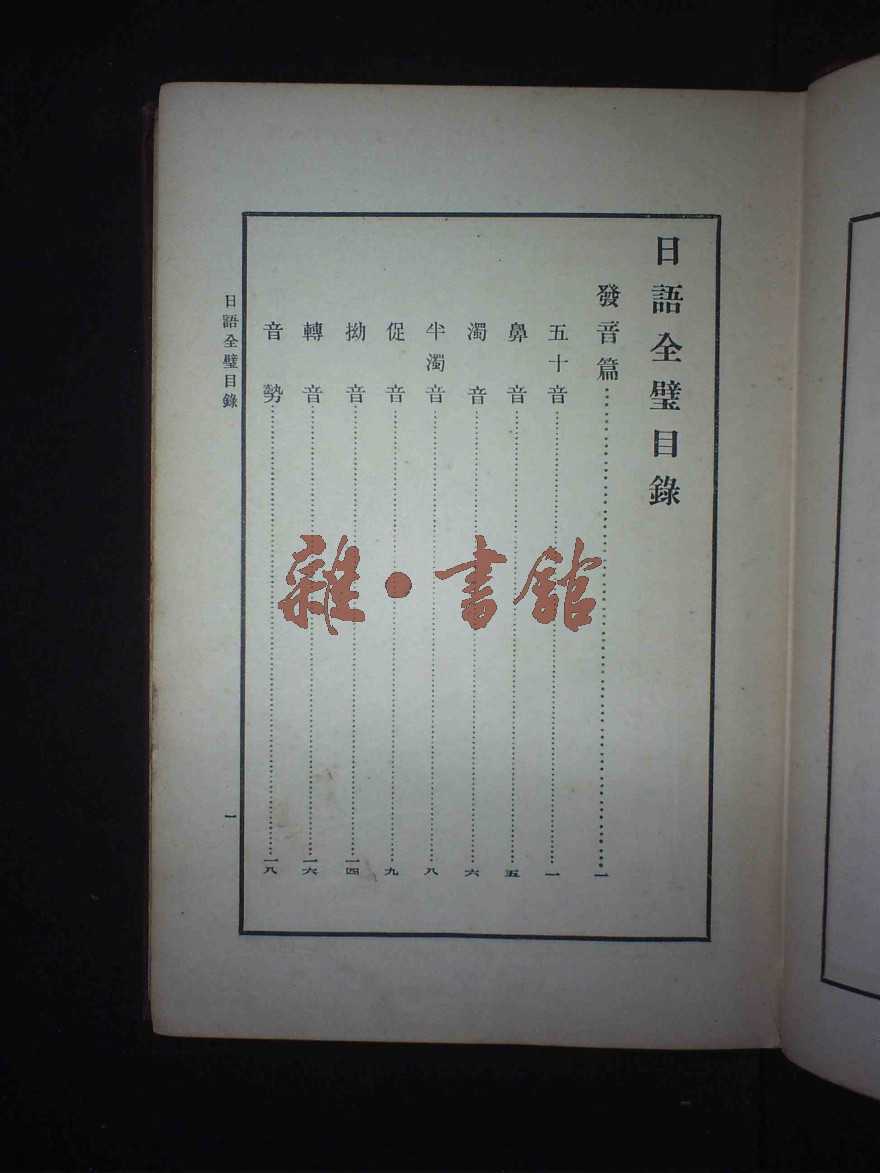 日語全璧目錄
發音篇……一
五十音……一
鼻音……五
濁音……六
半濁音……八
促音……九
拗音……一四
轉音……一六
音勢……一八
日語全璧目錄
一
雜·書館